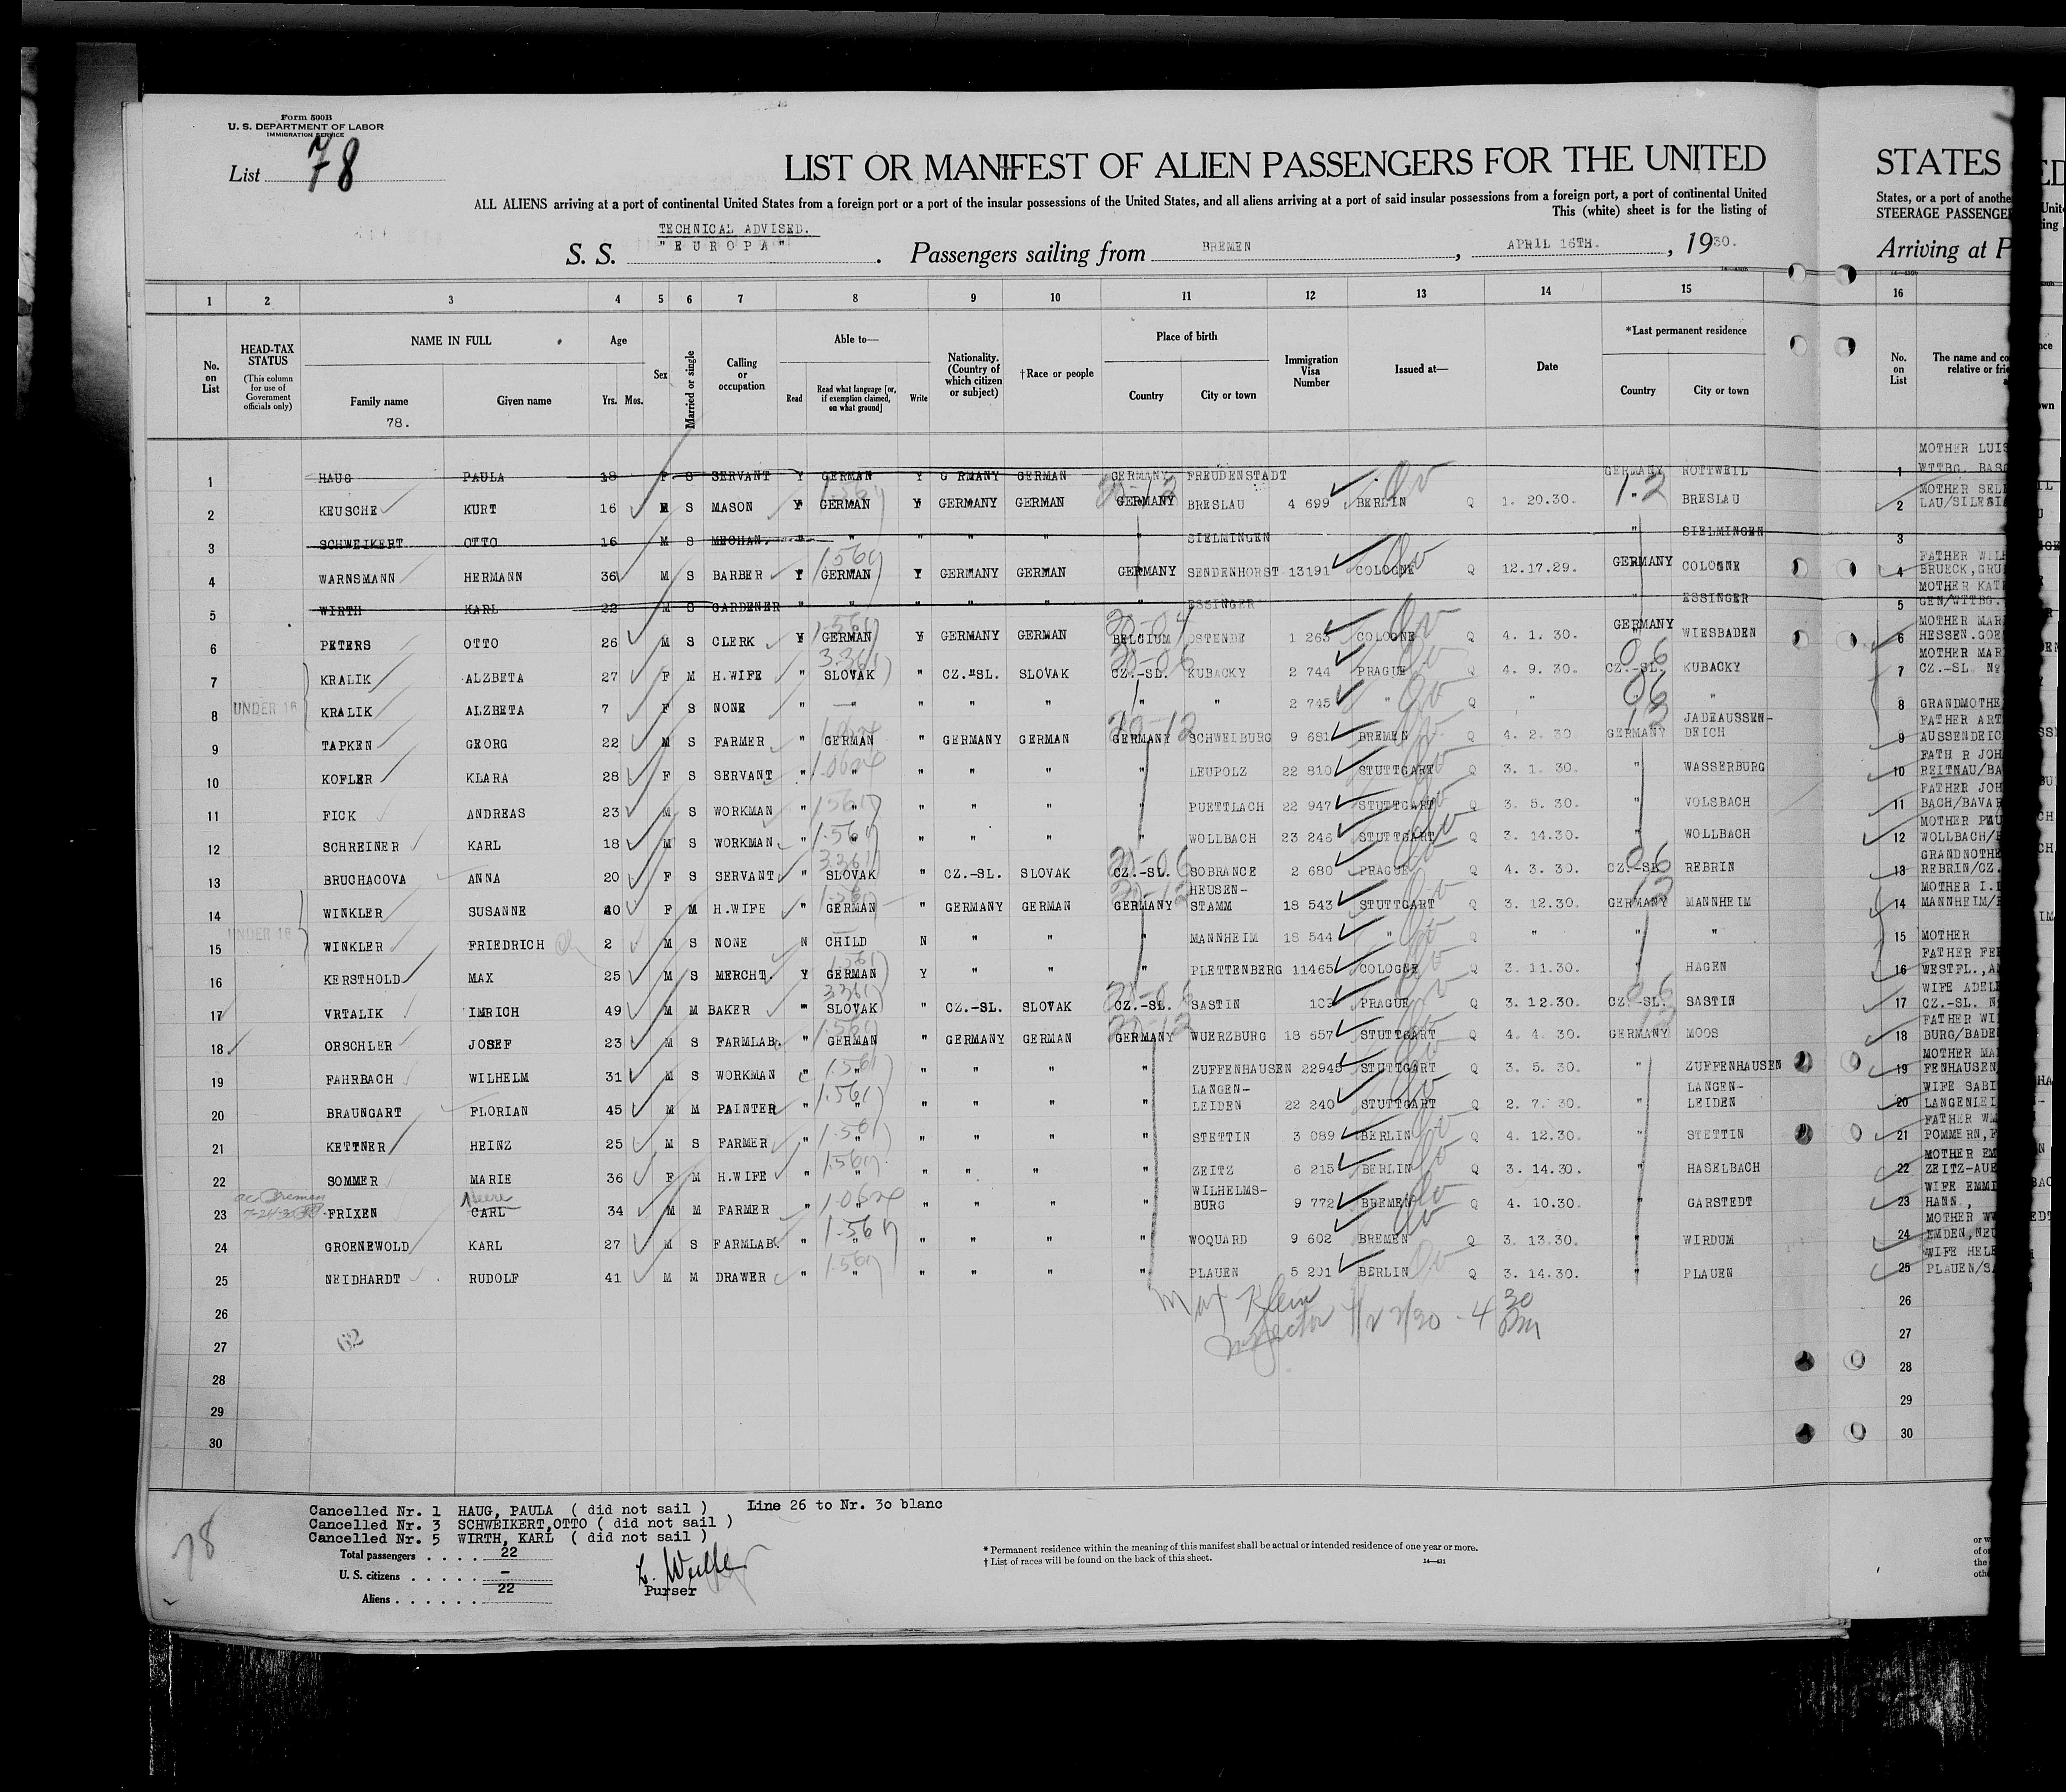 Form 500B
U. S. DEPARTMENT OF LABOR
IMMIGRATION SERVICE
List 78
LIST OR MANIFEST OF ALIEN PASSENGERS FOR THE UNITED
STATES
ALL ALIENS arriving at a port of continental United States from a foreign port or a port of the insular possessions of the United States, and all aliens arriving at a port of said insular possessions from a foreign port, a port of continental United
States, or a port of anothe
This (white) sheet is for the listing of
STEERAGE PASSENGE
TECHNICAL ADVISED.
S. S. "EUROPA". Passengers sailing from BREMEN, APRIL 16TH., 1930.
Arriving at P
1 2 3 4 5 6 7 8 9 10 11 12 13 14 15 16
No. on List
HEAD-TAX STATUS (This column for use of Government officials only)
NAME IN FULL Family name Given name
78.
Age Yrs. Mos.
Sex
Married or single
Calling or occupation
Able to— Read Read what language [or, if exemption claimed, on what ground] Write
Nationality. (Country of which citizen or subject)
†Race or people
Place of birth Country City or town
Immigration Visa Number
Issued at—
Date
*Last permanent residence Country City or town
No. on List
The name and co
relative or frie
1 HAUG PAULA 18 F S SERVANT Y GERMAN Y G RMANY GERMAN GERMANY FREUDENSTADT GERMANY ROTTWEIL 1 MOTHER LUIS WTTBG. BAS
2 KEUSCHE KURT 16 M S MASON Y GERMAN Y GERMANY GERMAN GERMANY BRESLAU 4 699 BERLIN Q 1. 20.30. " BRESLAU 2 MOTHER SEL LAU/SILESIA
3 SCHWEIKERT OTTO 16 M S MECHAN. " " " " " " SIELMINGEN " SIELMINGEN 3
4 WARNSMANN HERMANN 36 M S BARBER Y GERMAN Y GERMANY GERMAN GERMANY SENDENHORST 13191 COLOGNE Q 12.17.29. GERMANY COLOGNE 4 FATHER WILH BRUECK,GRU
5 WIRTH KARL 22 M S GARDENER " " " " " " ESSINGER " ESSINGER 5 MOTHER KAT GEN/WTTBG.
6 PETERS OTTO 26 M S CLERK Y GERMAN Y GERMANY GERMAN BELGIUM OSTENDE 1 263 COLOGNE Q 4. 1. 30. GERMANY WIESBADEN 6 MOTHER MAR HESSEN.GOE
7 KRALIK ALZBETA 27 F M H.WIFE " SLOVAK " CZ.-SL. SLOVAK CZ.-SL. KUBACKY 2 744 PRAGUE Q 4. 9. 30. CZ.-SL. KUBACKY 7 MOTHER MAR CZ.-SL. N
8 UNDER 16 KRALIK ALZBETA 7 F S NONE " — " " " " " 2 745 " Q " " " 8 GRANDMOTHE
9 TAPKEN GEORG 22 M S FARMER " GERMAN " GERMANY GERMAN GERMANY SCHWEIBURG 9 681 BREMEN Q 4. 2. 30. GERMANY JADEAUSSEN-DEICH 9 FATHER ART AUSSENDEIC
10 KOFLER KLARA 28 F S SERVANT " " " " " " LEUPOLZ 22 810 STUTTGART Q 3. 1. 30. " WASSERBURG 10 FATH R JOH REITNAU/BA
11 FICK ANDREAS 23 M S WORKMAN " " " " " " PUETTLACH 22 947 STUTTGART Q 3. 5. 30. " VOLSBACH 11 FATHER JOH BACH/BAVAR
12 SCHREINER KARL 18 M S WORKMAN " " " " " " WOLLBACH 23 246 STUTTGART Q 3. 14.30. " WOLLBACH 12 MOTHER PAU WOLLBACH/
13 BRUCHACOVA ANNA 20 F S SERVANT " SLOVAK " CZ.-SL. SLOVAK CZ.-SL. SOBRANCE 2 680 PRAGUE Q 4. 3. 30. CZ.-SL REBRIN 13 GRANDNOTHE REBRIN/CZ.
14 WINKLER SUSANNE 40 F M H.WIFE " GERMAN " GERMANY GERMAN GERMANY HEUSEN-STAMM 18 543 STUTTGART Q 3. 12.30. GERMANY MANNHEIM 14 MOTHER I. MANNHEIM/
15 UNDER 16 WINKLER FRIEDRICH 2 M S NONE N CHILD N " " " MANNHEIM 18 544 " Q " " " 15 MOTHER
16 KERSTHOLD MAX 25 M S MERCHT. Y GERMAN Y " " " PLETTENBERG 11465 COLOGNE Q 3. 11.30. " HAGEN 16 FATHER FE WESTFL.,A
17 VRTALIK IMRICH 49 M M BAKER " SLOVAK " CZ.-SL. SLOVAK CZ.-SL. SASTIN 103 PRAGUE Q 3. 12.30. CZ.-SL. SASTIN 17 WIFE ADEL CZ.-SL. N
18 ORSCHLER JOSEF 23 M S FARMLAB. " GERMAN " GERMANY GERMAN GERMANY WUERZBURG 18 657 STUTTGART Q 4. 4. 30. GERMANY MOOS 18 FATHER WI BURG/BADE
19 FAHRBACH WILHELM 31 M S WORKMAN " " " " " ZUFFENHAUSEN 22945 STUTTGART Q 3. 5. 30. " ZUFFENHAUSEN 19 MOTHER MA FENHAUSEN
20 BRAUNGART FLORIAN 45 M M PAINTER " " " " " " LANGEN-LEIDEN 22 240 STUTTGART Q 2. 7. 30. " LANGEN-LEIDEN 20 WIFE SABI LANGENLEI
21 KETTNER HEINZ 25 M S FARMER " " " " " " STETTIN 3 089 BERLIN Q 4. 12.30. " STETTIN 21 FATHER WM POMMERN,
22 SOMMER MARIE 36 F M H.WIFE " " " " " " ZEITZ 6 215 BERLIN Q 3. 14.30. " HASELBACH 22 MOTHER EM ZEITZ-AUE
23 FRIXEN CARL 34 M M FARMER " " " " " " WILHELMS-BURG 9 772 BREMEN Q 4. 10.30. " GARSTEDT 23 WIFE EMM HANN.,
24 GROENEWOLD KARL 27 M S FARMLAB. " " " " " " WOQUARD 9 602 BREMEN Q 3. 13.30. " WIRDUM 24 MOTHER EMDEN,NEU
25 NEIDHARDT RUDOLF 41 M M DRAWER " " " " " " PLAUEN 5 201 BERLIN Q 3. 14.30. " PLAUEN 25 WIFE HELE PLAUEN/S
26 Max Klein 26
27 62 Inspector 27
28 28
29 29
30 30
Cancelled Nr. 1 HAUG, PAULA ( did not sail ) Line 26 to Nr. 3o blanc
Cancelled Nr. 3 SCHWEIKERT,OTTO ( did not sail )
Cancelled Nr. 5 WIRTH, KARL ( did not sail )
78
Total passengers . . . . 22
U. S. citizens . . . . . –
Aliens . . . . . . 22
Purser
* Permanent residence within the meaning of this manifest shall be actual or intended residence of one year or more.
† List of races will be found on the back of this sheet.
14—431